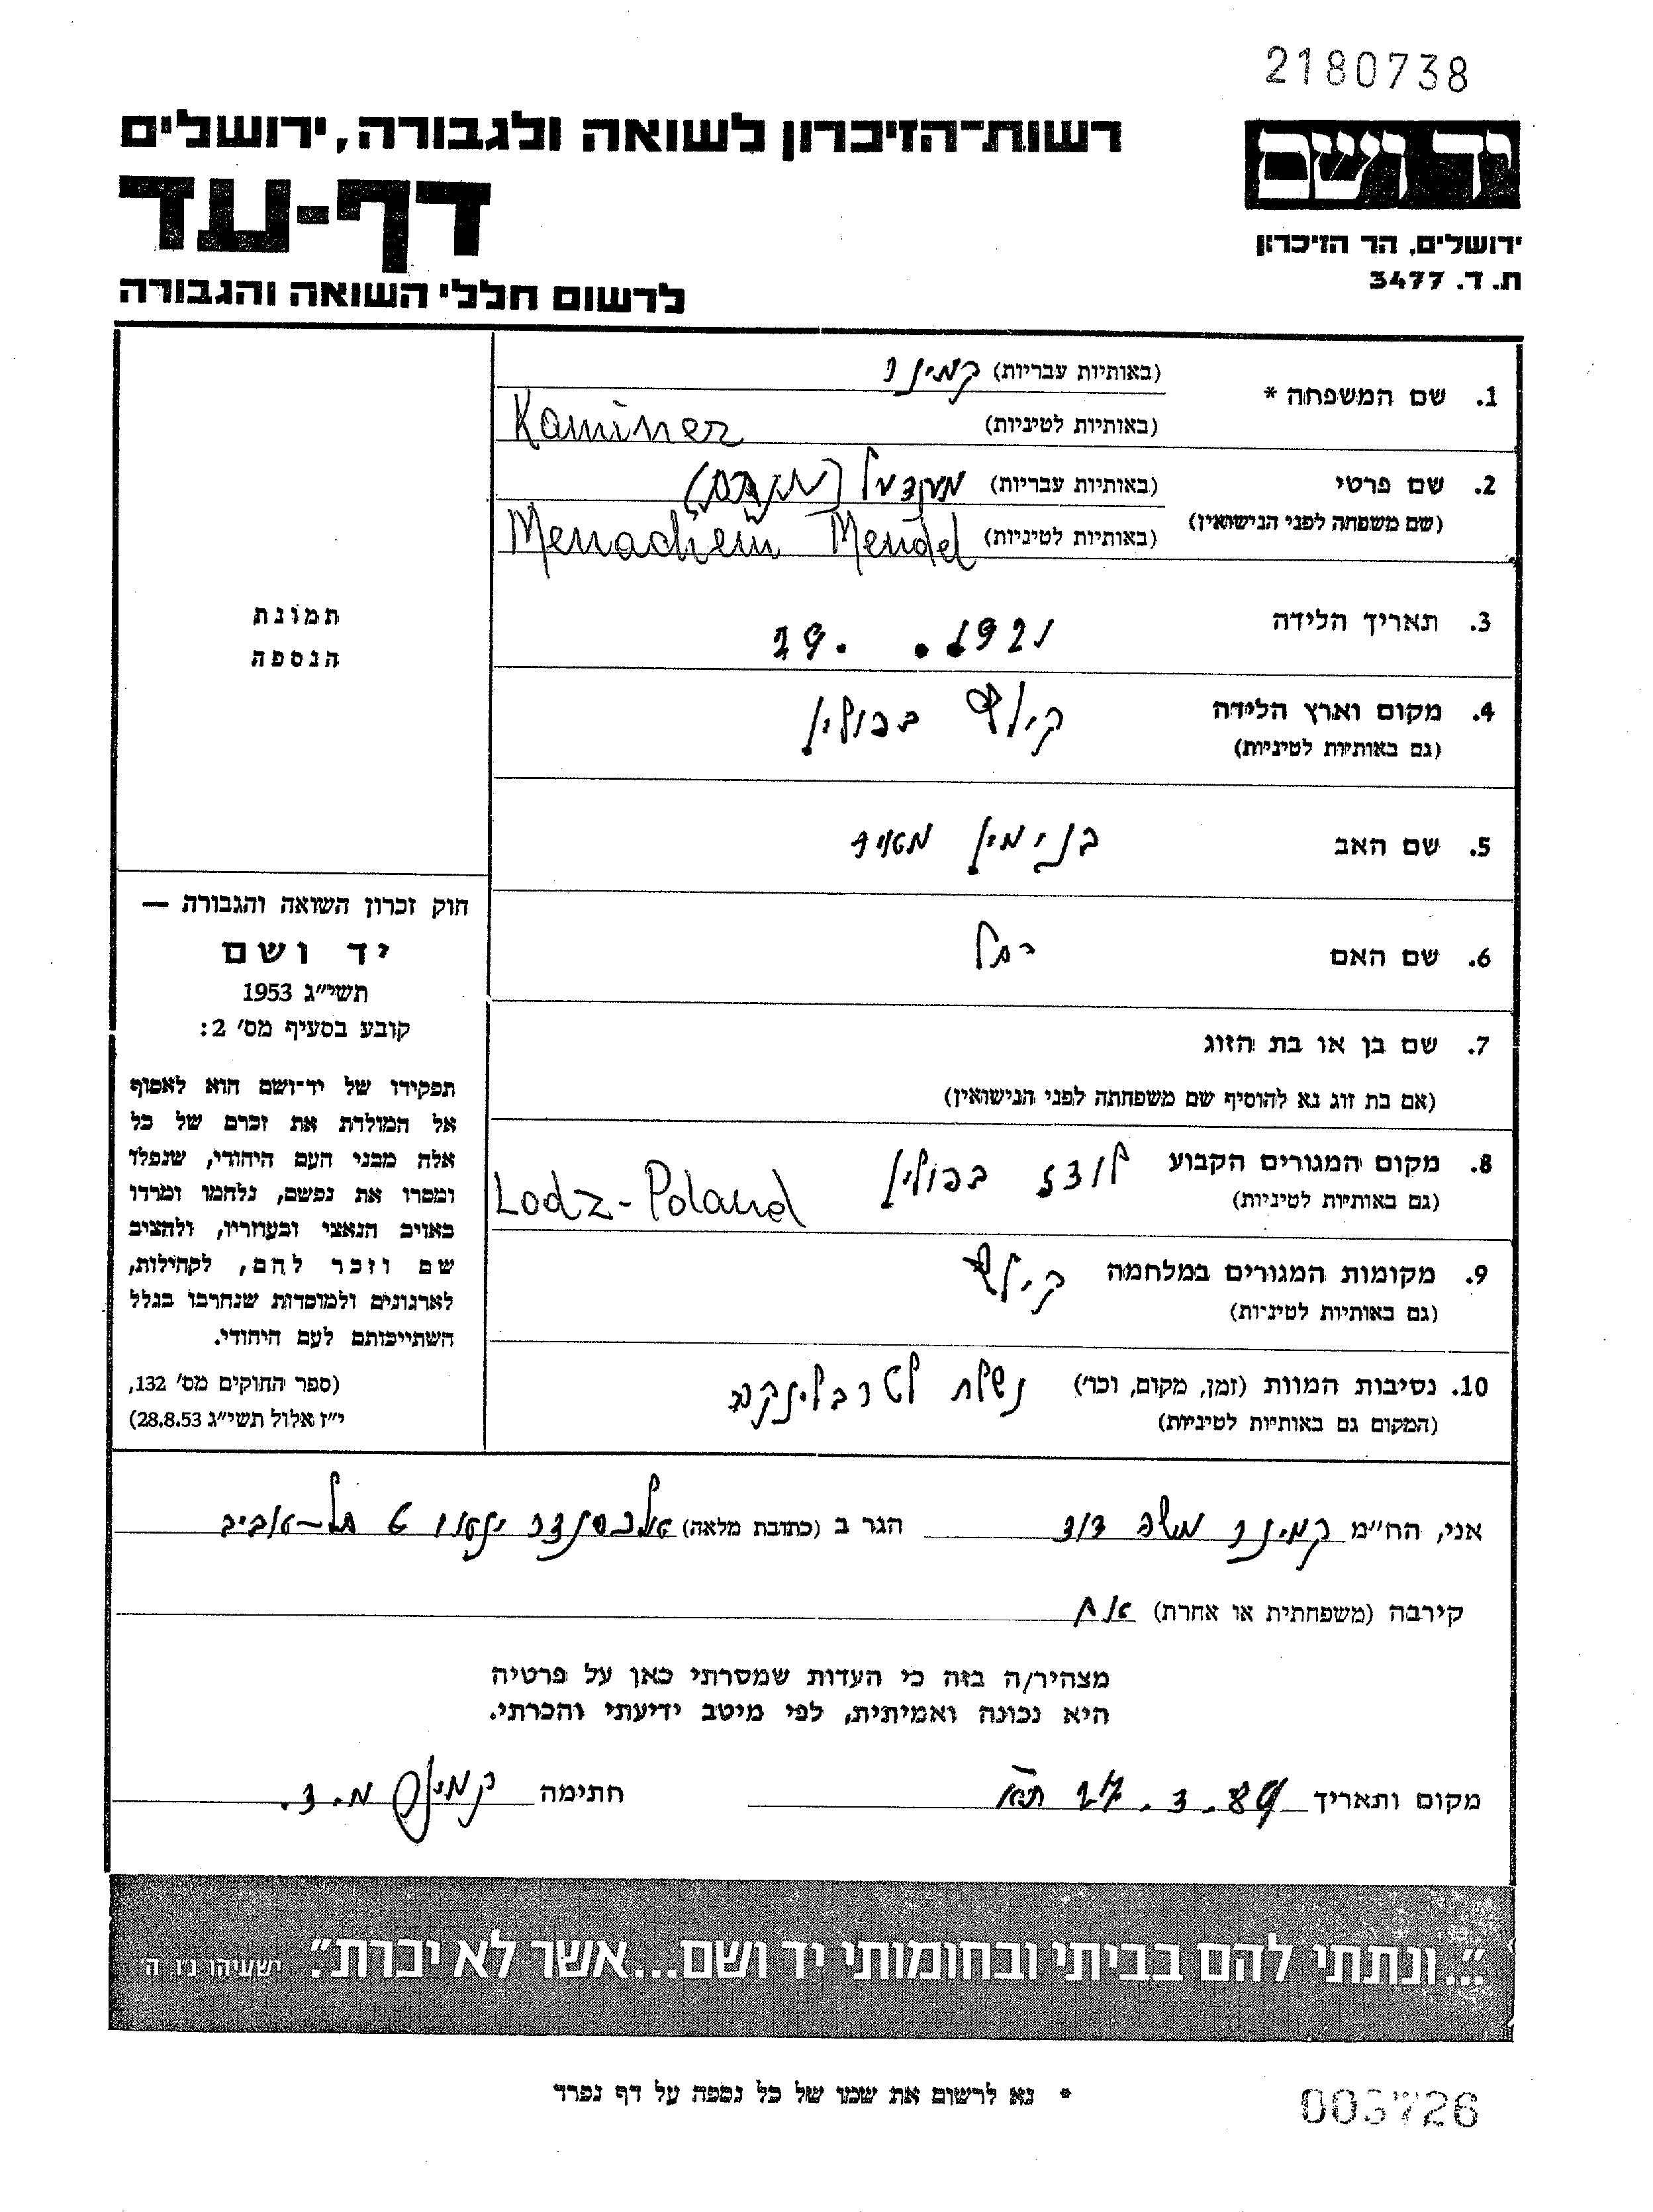 2180738
יד ושם
ירושלים, הר הזיכרון
ת. ד. 3477
רשות־הזיכרון לשואה ולגבורה, ירושלים
דף-עד
לרשום חללי השואה והגבורה
1. שם המשפחה *
(באותיות עבריות) קמינר
(באותיות לטיניות) Kaminer
2. שם פרטי
(שם משפחה לפני הנישואין)
(באותיות עבריות)
(באותיות לטיניות) Menachem Mendel
3. תאריך הלידה 1921. .29
4. מקום וארץ הלידה קילצה בפולין
(גם באותיות לטיניות)
5. שם האב בנימין מאיר
6. שם האם רחל
7. שם בן או בת הזוג
(אם בת זוג נא להוסיף שם משפחתה לפני הנישואין)
8. מקום המגורים הקבוע לודז בפולין Lodz-Poland
(גם באותיות לטיניות)
9. מקומות המגורים במלחמה קילצה
(גם באותיות לטיניות)
10. נסיבות המוות (זמן, מקום, וכו') נשלח לטרבלינקה
(המקום גם באותיות לטיניות)
תמונת
הנספה
חוק זכרון השואה והגבורה —
יד ושם
תשי"ג 1953
קובע בסעיף מס' 2:
תפקידו של יד־ושם הוא לאסוף
אל המולדת את זכרם של כל
אלה מבני העם היהודי, שנפלו
ומסרו את נפשם, נלחמו ומרדו
באויב הנאצי ובעוזריו, ולהציב
שם וזכר להם, לקהילות,
לארגונים ולמוסדות שנחרבו בגלל
השתייכותם לעם היהודי.
(ספר החוקים מס' 132,
י"ז אלול תשי"ג 28.8.53)
אני, הח"מ קמינר משה דוד הגר ב (כתובת מלאה) אלכסנדר ינאי 6 תל-אביב
קירבה (משפחתית או אחרת) אח
מצהיר/ה בזה כי העדות שמסרתי כאן על פרטיה
היא נכונה ואמיתית, לפי מיטב ידיעתי והכרתי.
מקום ותאריך 27.3.89 ת"א חתימה קמינר מ.ד.
"...ונתתי להם בביתי ובחומותי יד ושם...אשר לא יכרת". ישעיהו נ'ו, ה'
* נא לרשום את שמו של כל נספה על דף נפרד
003726